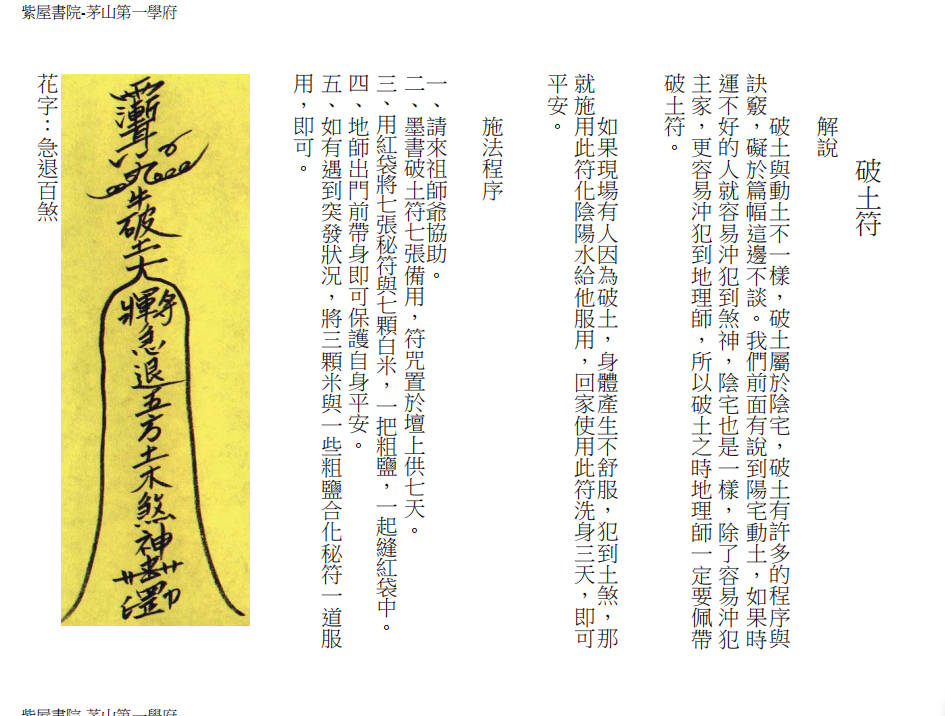 紫屋書院-茅山第一學府
破土符
解說
破土與動土不一樣，破土屬於陰宅，破土有許多的程序與
訣竅，礙於篇幅這邊不談。我們前面有說到陽宅動土，如果時
運不好的人就容易沖犯到煞神，陰宅也是一樣，除了容易沖犯
主家，更容易沖犯到地理師，所以破土之時地理師一定要佩帶
破土符。
如果現場有人因為破土，身體產生不舒服，犯到土煞，那
就施用此符化陰陽水給他服用，回家使用此符洗身三天，即可
平安。
施法程序
一、請來祖師爺協助。
二、墨書破土符七張備用，符咒置於壇上供七天。
三、用紅袋將七張秘符與七顆白米，一把粗鹽，一起縫紅袋中。
四、地師出門前帶身即可保護自身平安。
五、如有遇到突發狀況，將三顆米與一些粗鹽合化秘符一道服
用，即可。
破土大
將軍急退五方土木煞神
花字：急退百煞
紫屋書院-茅山第一學府